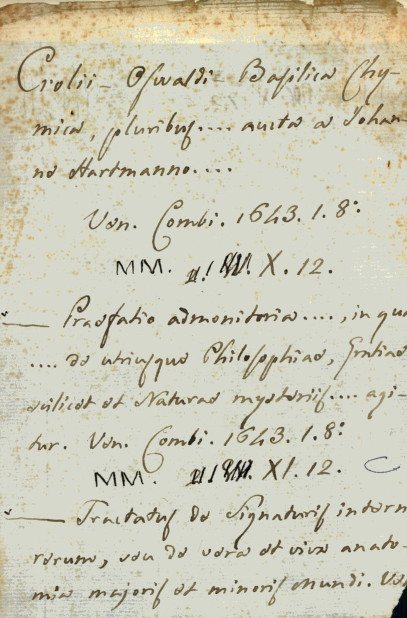 Crolii - Oswaldi - Basilica Chy-
mica, pluribus.... aucta a Johan-
ne Hartmanno....
Ven. Combi. 1643. 1. 8:
MM. X. 12.
— Praefatio admonitoria...., in qua
.... de utriusque Philosophiae, Gratiae
scilicet et Naturae mysteriis.... agi-
tur. Ven. Combi. 1643. 1. 8:
MM. XI. 12.
— Tractatus de Signaturis intern
rerum, seu de vera et viva anato-
mia majoris et minoris Mundi. Ven